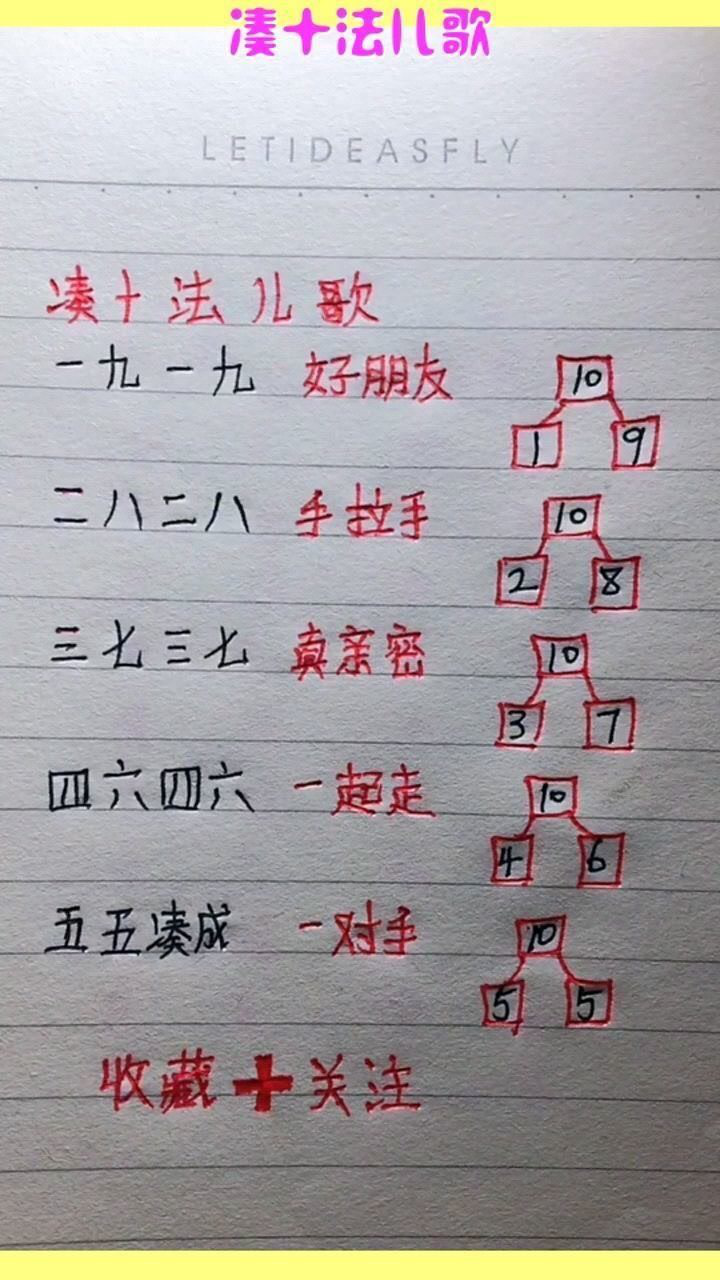 凑十法儿歌
LETIDEASFLY
凑十法儿歌
一九一九 好朋友
10
1 9
二八二八 手拉手
10
2 8
三七三七 真亲密
10
3 7
四六四六 一起走
10
4 6
五五凑成 一对手
10
5 5
收藏+关注